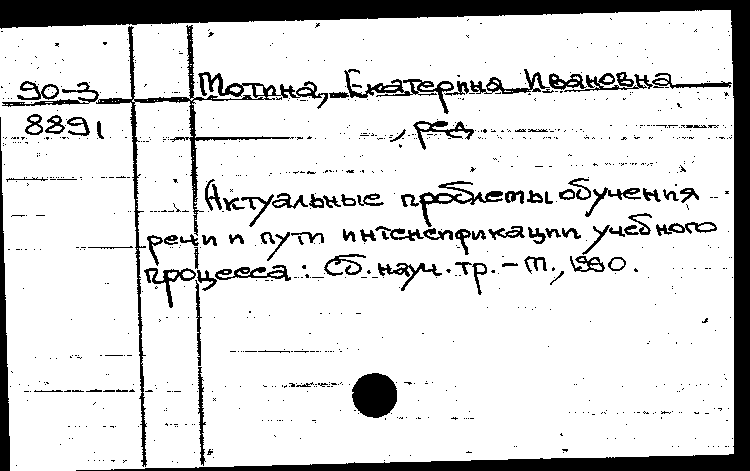 90-3
8891
Мотина, Екатерина Ивановна
, ред.
Актуальные проблемы обучения
речи и пути интенсификации учебного
процесса: Сб. науч. тр. - М., 1990.